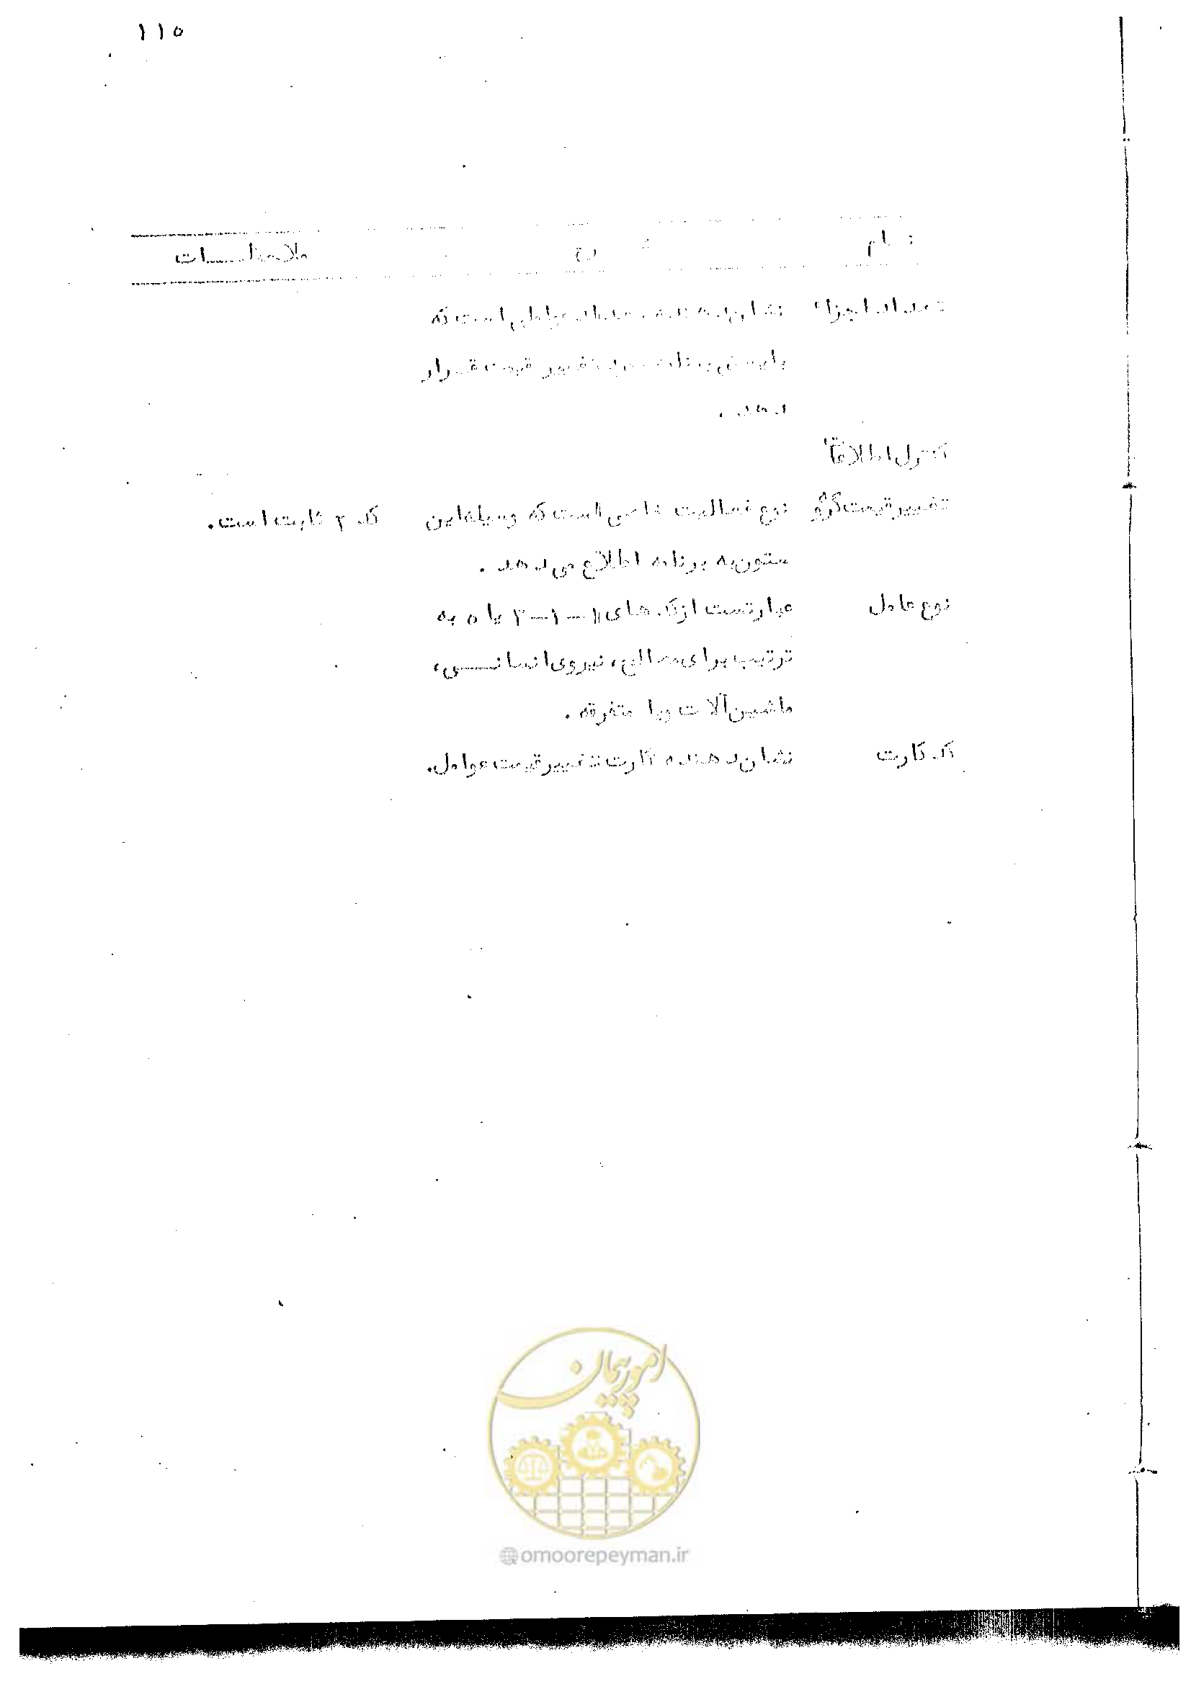 ۱۱۵
نام شرح ملاحظات
تعداد اجزاء نشان‌دهنده تعداد عواملی است که
بایستی برنامه مورد تغییر قیمت قرار
دهد.
کنترل اطلاعات
تغییر قیمت گروه نوع فعالیت خاصی است که وسیله این کد ۲ ثابت است.
ستون به برنامه اطلاع می‌دهد.
نوع عامل عبارتست از کدهای ۱۱-۱-۳ یا ۵ به
ترتیب برای مصالح، نیروی انسانی،
ماشین‌آلات و یا متفرقه.
کد کارت نشان‌دهنده کارت تغییر قیمت عوامل.
امور پیمان
omoorepeyman.ir